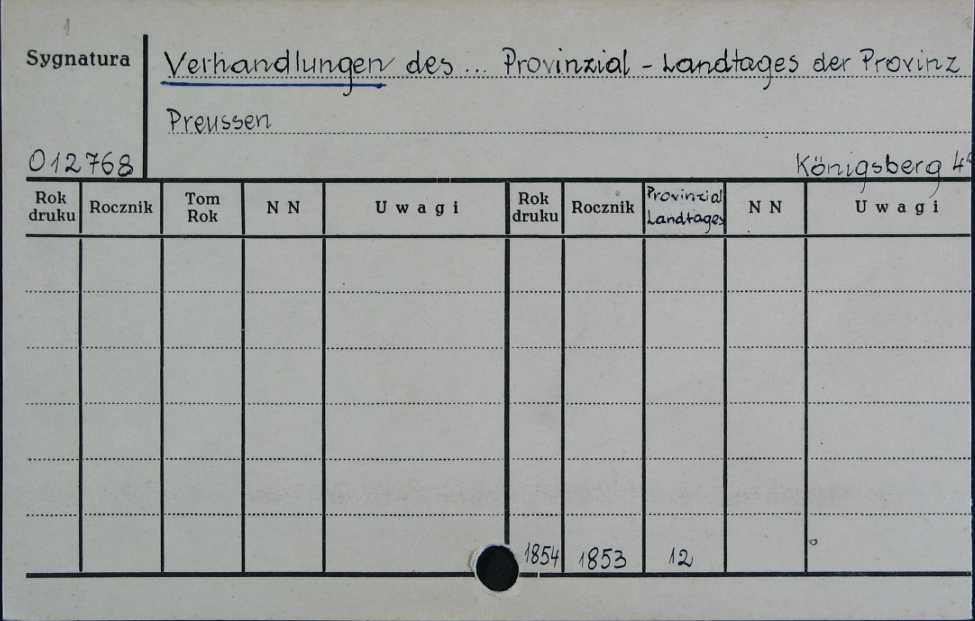 1
Sygnatura
Verhandlungen des ... Provinzial - Landtages der Provinz
Preussen
012768
Königsberg 4°
Rok druku Rocznik Tom Rok N N Uwagi Rok druku Rocznik Provinzial Landtages N N Uwagi
1854 1853 12